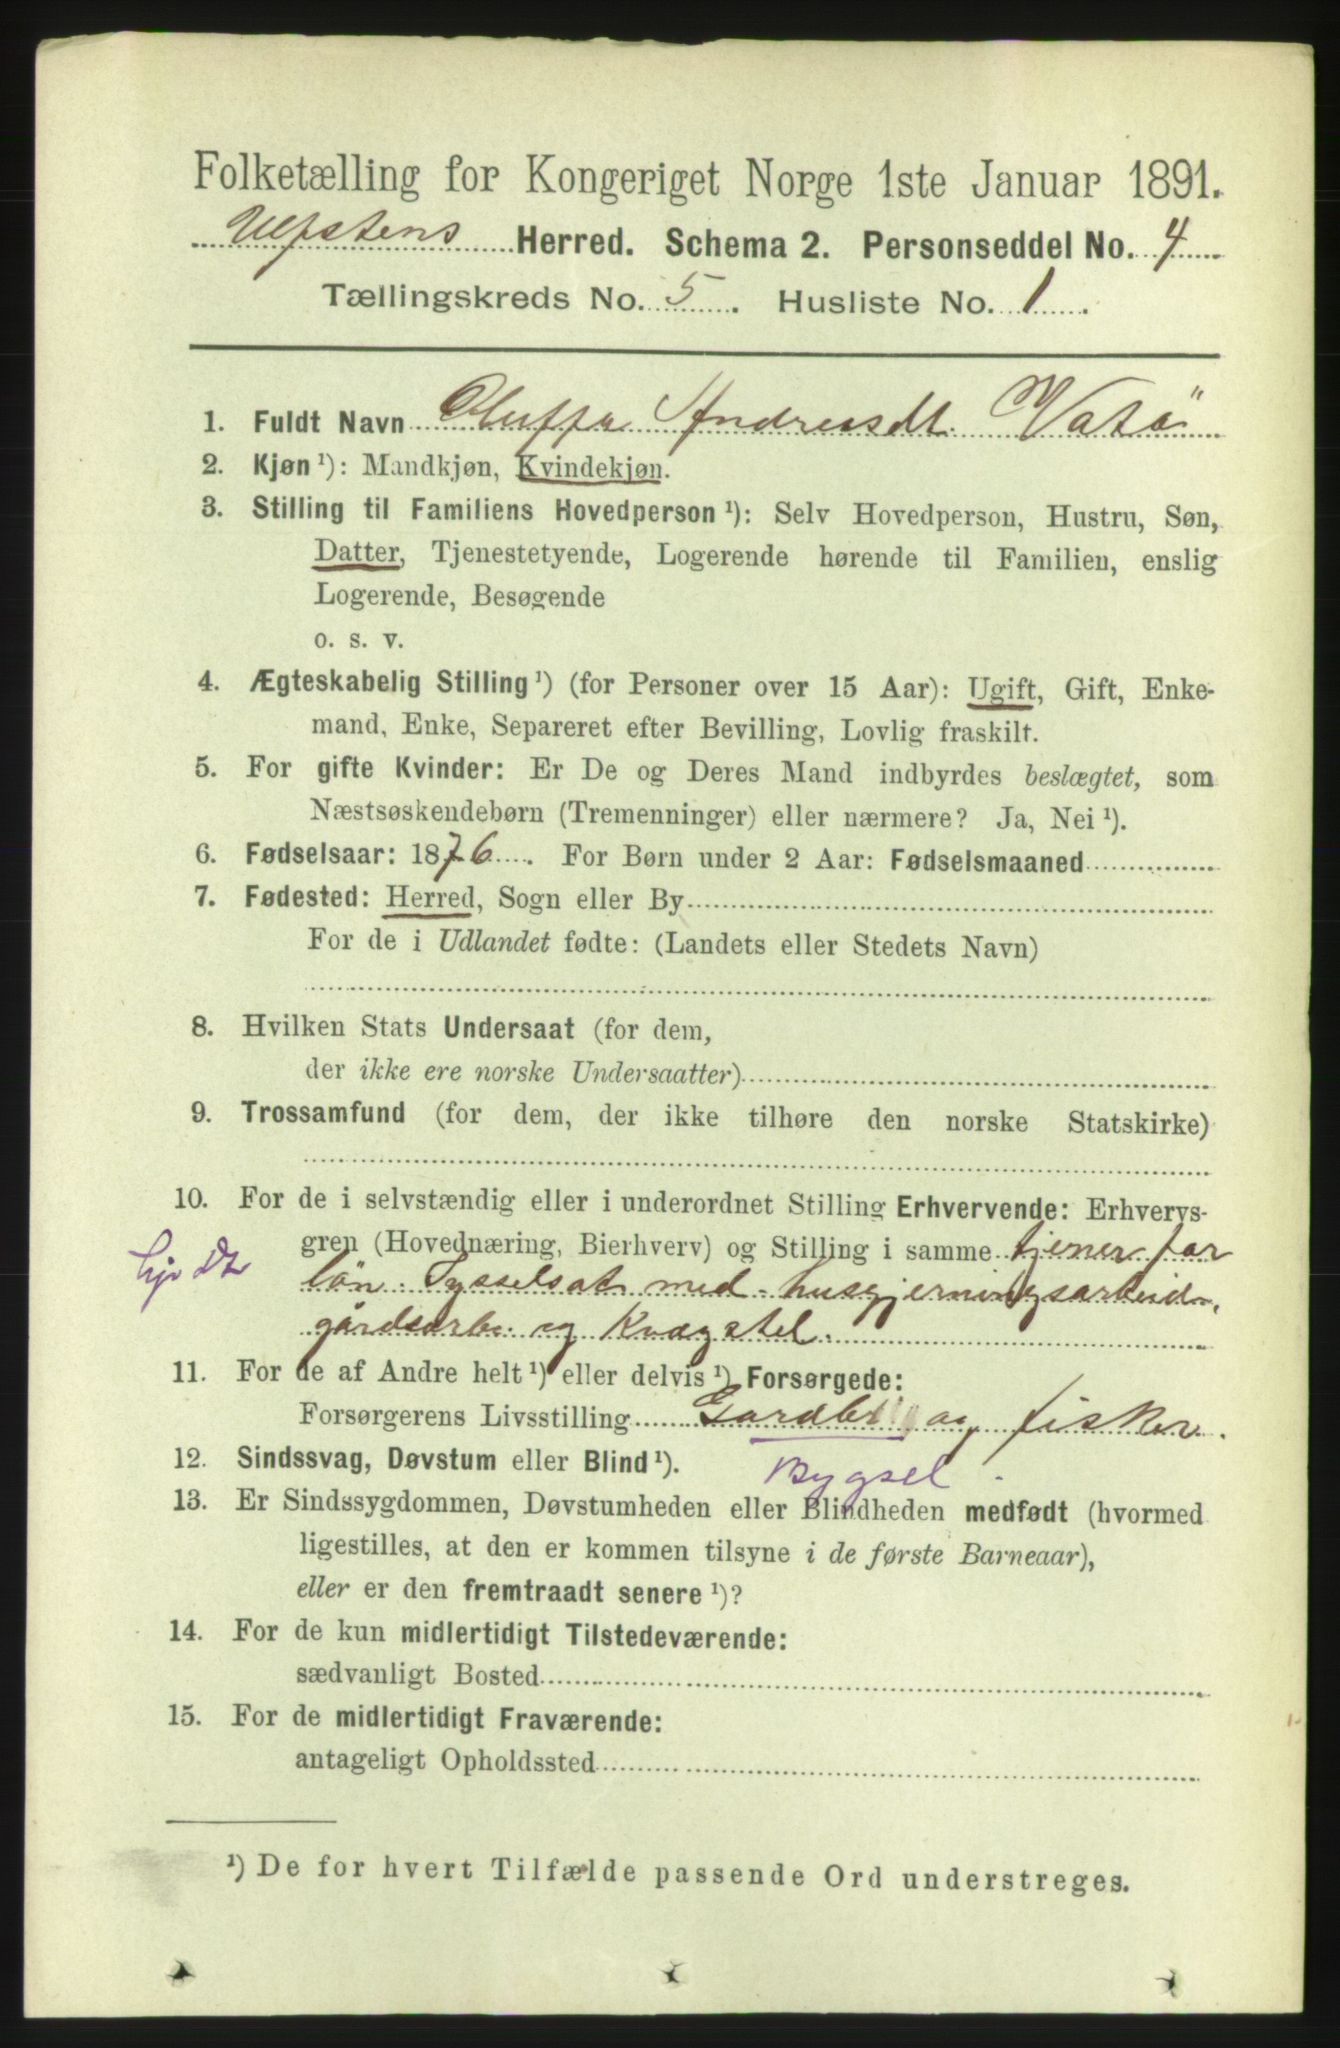 Folketælling for Kongeriget Norge 1ste Januar 1891.
Ulfstens Herred. Schema 2. Personseddel No. 4
Tællingskreds No. 5. Husliste No. 1.
1. Fuldt Navn Oluffa Andreasdt. Vatö
2. Kjøn ¹): Mandkjøn, Kvindekjøn.
3. Stilling til Familiens Hovedperson ¹): Selv Hovedperson, Hustru, Søn,
Datter, Tjenestetyende, Logerende hørende til Familien, enslig
Logerende, Besøgende
o. s. v.
4. Ægteskabelig Stilling ¹) (for Personer over 15 Aar): Ugift, Gift, Enke-
mand, Enke, Separeret efter Bevilling, Lovlig fraskilt.
5. For gifte Kvinder: Er De og Deres Mand indbyrdes beslægtet, som
Næstsøskendebørn (Tremenninger) eller nærmere? Ja, Nei ¹).
6. Fødselsaar: 1876. For Børn under 2 Aar: Fødselsmaaned
7. Fødested: Herred, Sogn eller By
For de i Udlandet fødte: (Landets eller Stedets Navn)
8. Hvilken Stats Undersaat (for dem,
der ikke ere norske Undersaatter)
9. Trossamfund (for dem, der ikke tilhøre den norske Statskirke)
10. For de i selvstændig eller i underordnet Stilling Erhvervende: Erhvervs-
gren (Hovednæring, Bierhverv) og Stilling i samme tjener for
lön. Sysselsat med husgjerningsarbeid,
gårdsarb. og Kvægstel.
11. For de af Andre helt ¹) eller delvis ¹) Forsørgede:
Forsørgerens Livsstilling Gardbr og fisker.
Bygsel
12. Sindssvag, Døvstum eller Blind ¹).
13. Er Sindssygdommen, Døvstumheden eller Blindheden medfødt (hvormed
ligestilles, at den er kommen tilsyne i de første Barneaar),
eller er den fremtraadt senere ¹)?
14. For de kun midlertidigt Tilstedeværende:
sædvanligt Bosted
15. For de midlertidigt Fraværende:
antageligt Opholdssted
¹) De for hvert Tilfælde passende Ord understreges.